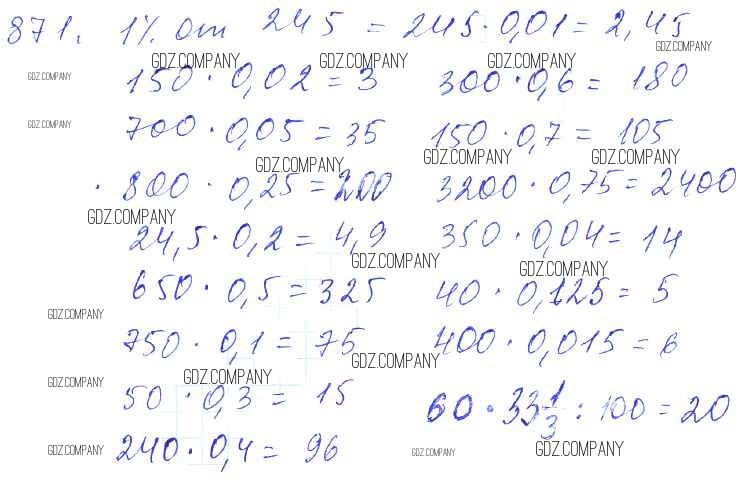 871. 1% от 245 = 245 · 0,01 = 2,45
GDZ.COMPANY
GDZ.COMPANY GDZ.COMPANY GDZ.COMPANY
GDZ.COMPANY 150 · 0,02 = 3 300 · 0,6 = 180
GDZ.COMPANY 700 · 0,05 = 35 150 · 0,7 = 105
GDZ.COMPANY GDZ.COMPANY GDZ.COMPANY
800 · 0,25 = 200 3200 · 0,75 = 2400
GDZ.COMPANY
24,5 · 0,2 = 4,9 350 · 0,04 = 14
GDZ.COMPANY GDZ.COMPANY
650 · 0,5 = 325 40 · 0,125 = 5
GDZ.COMPANY
750 · 0,1 = 75 400 · 0,015 = 6
GDZ.COMPANY
GDZ.COMPANY GDZ.COMPANY
50 · 0,3 = 15 60 · 33 1/3 : 100 = 20
GDZ.COMPANY 240 · 0,4 = 96 GDZ.COMPANY GDZ.COMPANY